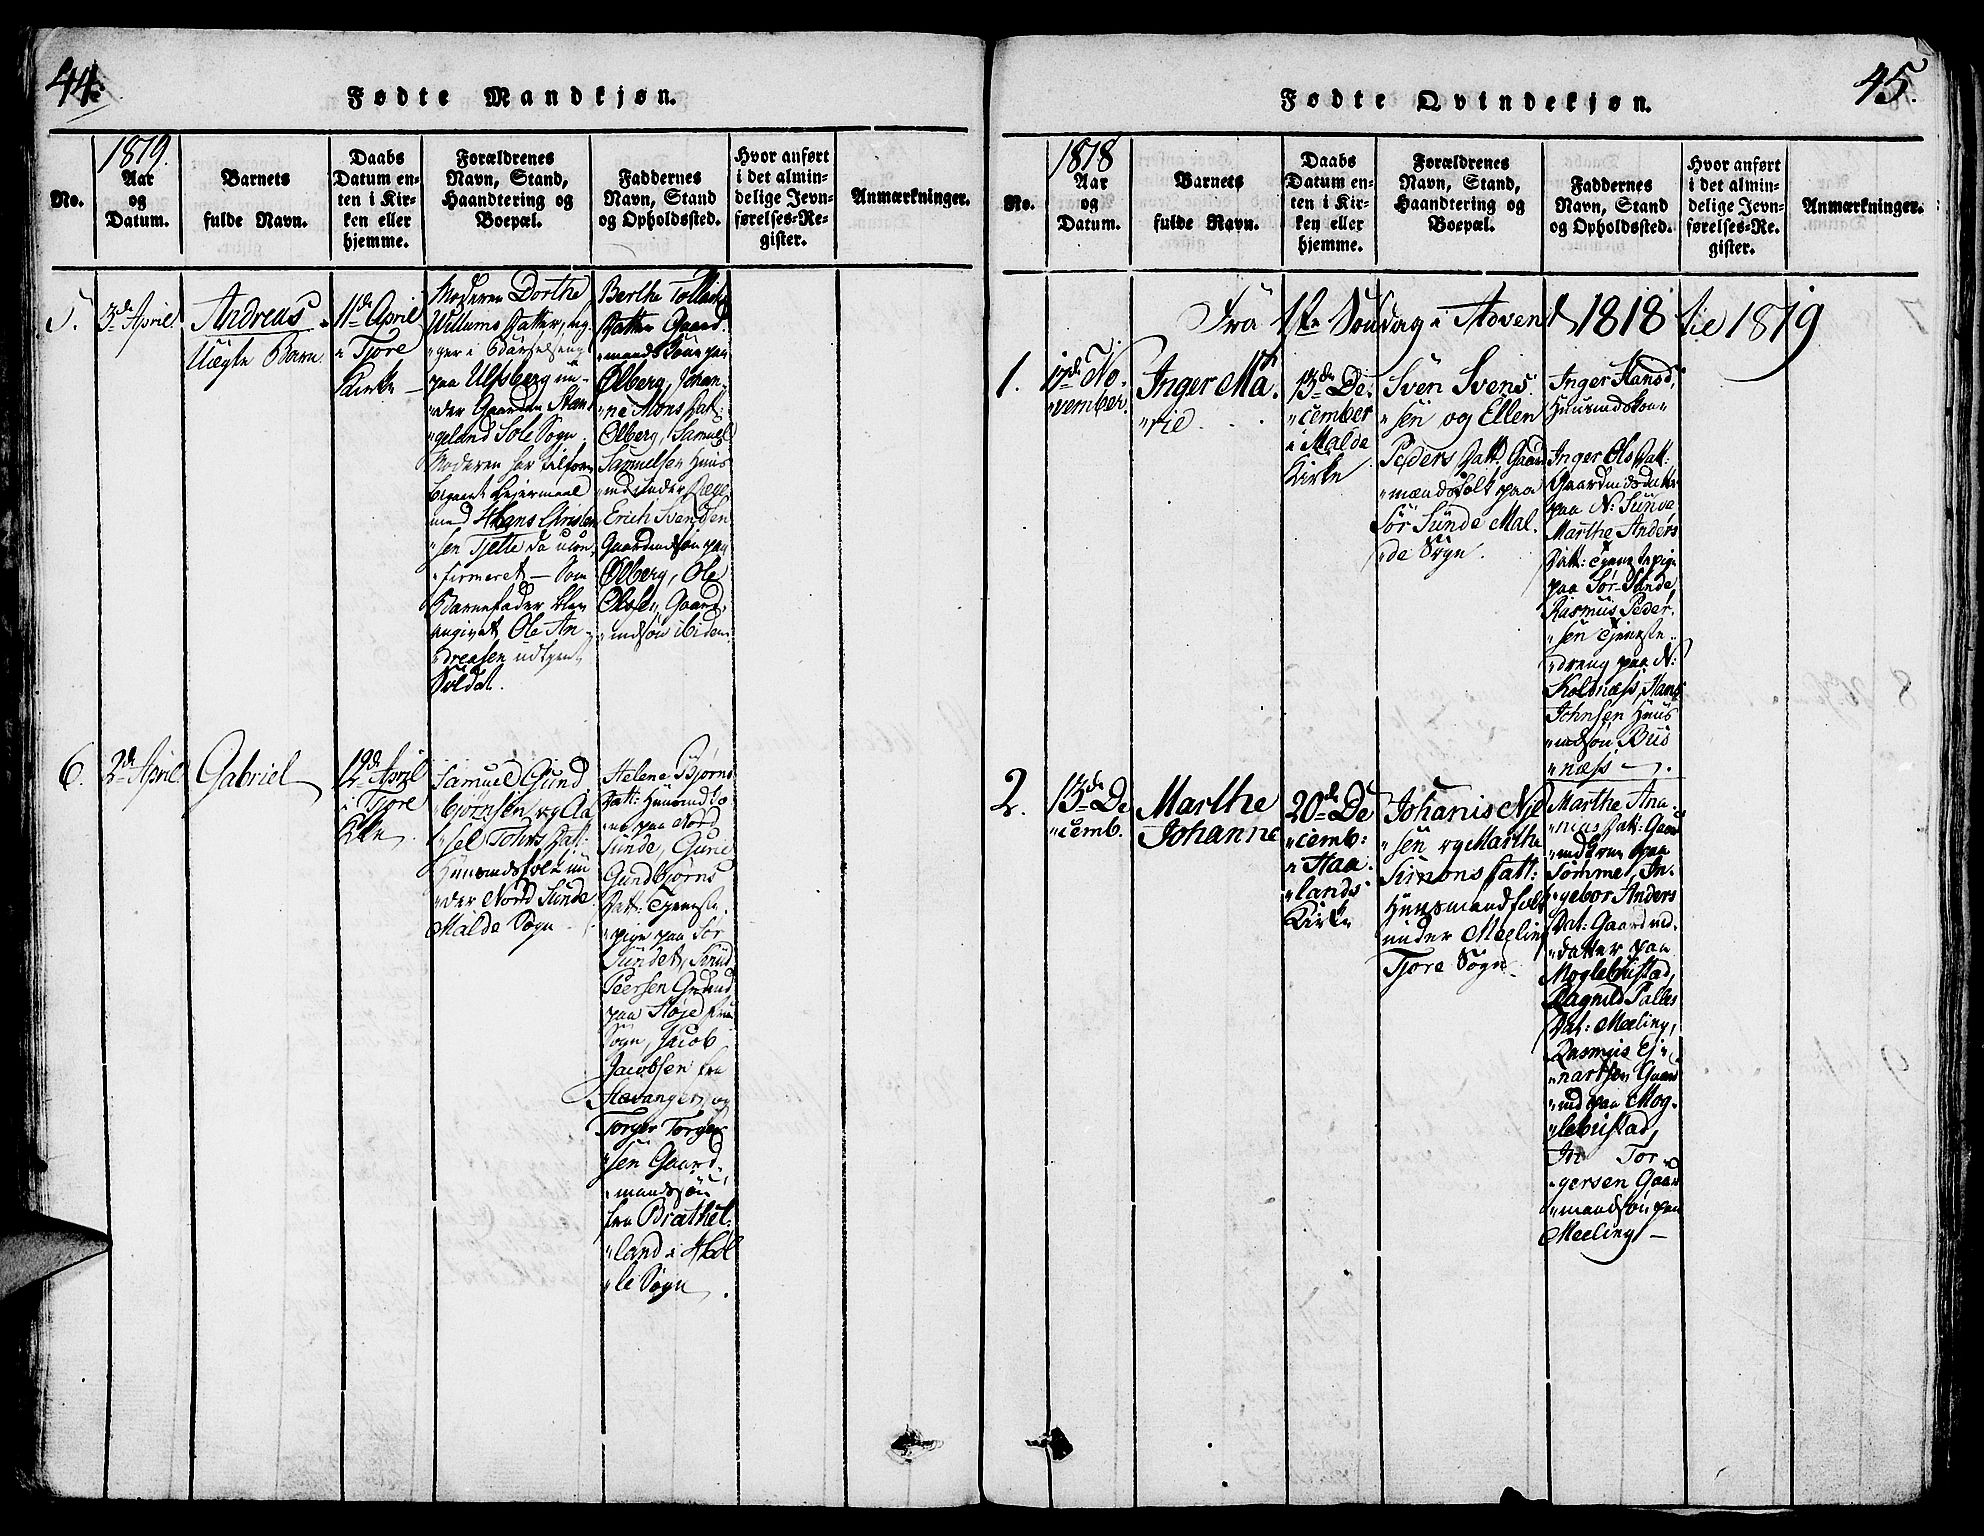 44.
Fødte Mandkjøn.
No.
1819.
Aar
og
Datum.
Barnets
fulde Navn.
Daabs
Datum en-
ten i Kir-
ken eller
hjemme.
Forældrenes
Navn, Stand,
Haandtering og
Boepæl.
Faddernes
Navn, Stand
og Opholdssted.
Hvor anført
i det almin-
delige Jevn-
førelses-Re-
gister.
Anmærkninger.
5.
3de April
Andreas
Uægte Barn
11de April
i Tjore
Kirke
Moderen Dorthe
Willums Datter,
paa Ulfsberg un-
der Gaarden Stan-
geland Sole Sogn.
Moderen har tilforn
begaaet Leiermaal
med Hans Christen
sen Tjelte da ucon-
firmeret – Som
Barnefader blev
angivet Ole An-
dreasen udtjent
Soldat.
Berthe Tollach
Datter Gaard-
mands Kone paa
Ølberg, Johan-
ne Mons Dat:
Ølberg, Samuel
Samuelsen Huus-
md under
Erich Svendsen
Gaardmdsøn paa
Ølberg, Ole
Olsen, Gaard-
mdsøn ibidem
6.
2de April
Gabriel
12de April
i Tjore
Kirke
Samuel Gund
bjørnsen og Aa
sel Johns Dat:
Huusmdsfolk un
der Nord Sunde
Malde Sogn
Helene Bjørns
Dat: Huusmdko-
ne paa Nord
Sunde, Gune
Gundbjørns
Dat: Tjeneste-
pige paa Sør
Sundet, Knud
Peersen
paa
Sogn, Jacob
Jacobsen fra
Stavanger, og
Torger Torger-
sen Gaard-
mandssøn
fra Brathet-
land i
le Sogn.
45.
Fødte Qvindekjøn.
No.
1818
Aar
og
Datum.
Barnets
fulde Navn.
Daabs
Datum en-
ten i Kir-
ken eller
hjemme.
Forældrenes
Navn, Stand,
Haandtering og
Boepæl.
Faddernes
Navn, Stand
og Opholdssted.
Hvor anført
i det almin-
delige Jevn-
førelses-Re-
gister.
Anmærkninger.
Fra 1te Søndag i Advent 1818 til 1819
1.
17de No-
vember.
Inger Ma-
rie
13de De-
cember
i Malde
Kirke
Sven Svens-
sen og Ellen
Peders Datt. Gaard
mandsfolk paa
Sør Sunde Mal-
de Sogn.
Inger Hansd.
Huusmdskone
Inger Ols Datt:
Gaardmdsdatter
paa N: Sunde
Marthe Anders
Datt: Tjenestepige
paa Sør-Sunde
Rasmus Peder-
sen Tjeneste-
dreng paa N:
Koldnæss, Hans
Johnsen Huus
mdsøn Bus
næss.
2.
13de De
cemb.
Marthe
Johanne
20de De
cemb:
i Haa
lands
Kirke
Johanis Niel
sen og Marthe
Simons Datt:
Huusmandsfolk
under Meeling
Tjore Sogn
Marthe Ana-
nias Dat: Gaard
mdkone paa
Sømme, In-
gebor Anders
Dat: Gaardmd.
datter paa
Moglebustad,
Ragnild Palles
Dat: Meeling,
Rasmus Ej-
nartsen Gaard
md paa Mog-
lebustad,
Tor-
gersen Gaard
mandsøn paa
Meeling –